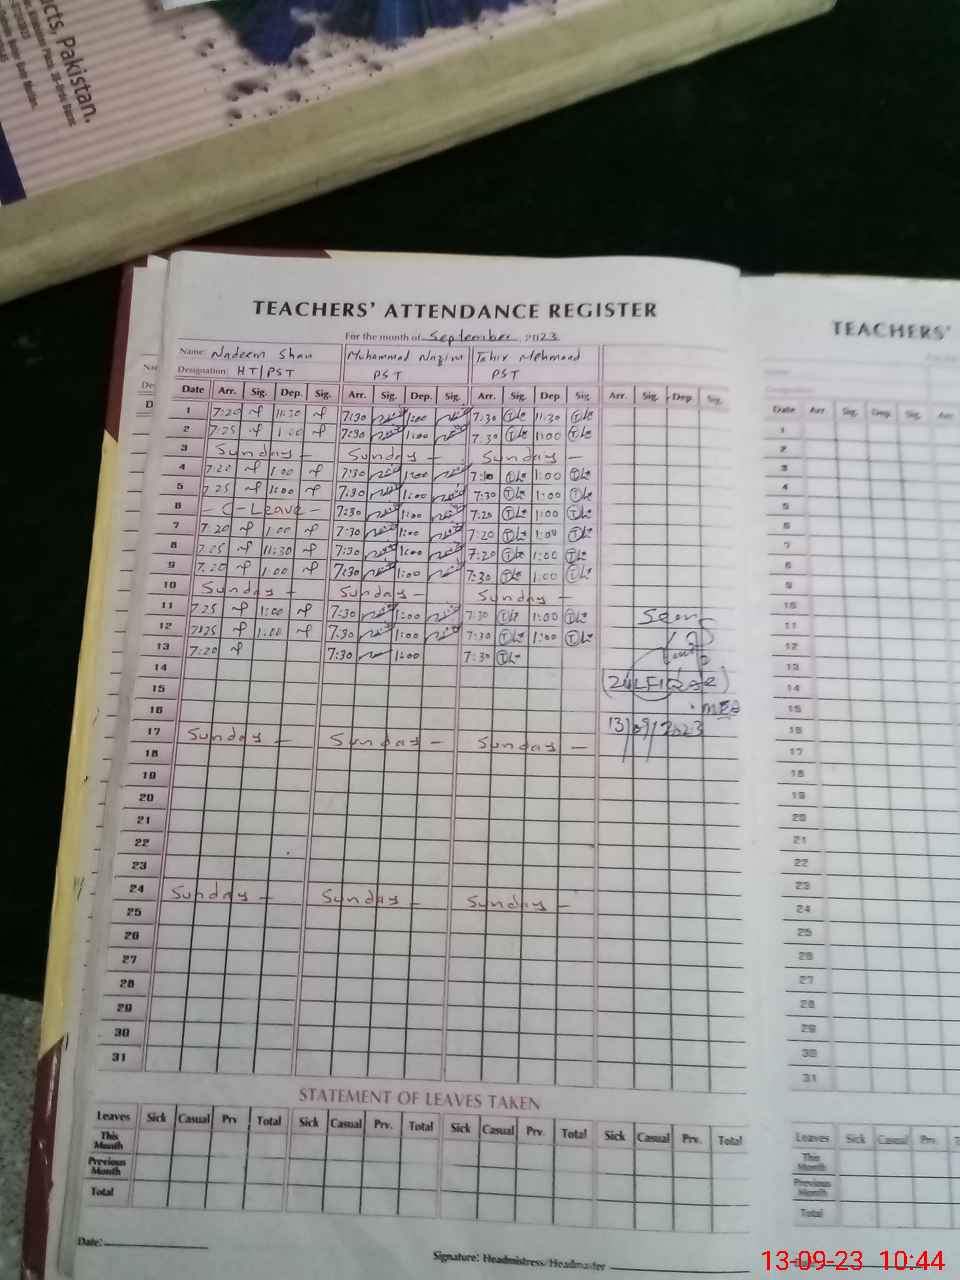 ucts, Pakistan.
TEACHERS' ATTENDANCE REGISTER
For the month of September, 2023
Name: Nadeem Shah Muhammad Nazim Tahir Mehmood
Designation: HT/PST PST PST
Date Arr. Sig. Dep. Sig. Arr. Sig. Dep. Sig. Arr. Sig. Dep. Sig. Arr. Sig. Dep. Sig.
1 7:20 11:30 7:30 1:00 7:30 11:30
2 7:25 1:00 7:30 1:00 7:30 1:00
3 Sunday - Sunday - Sunday -
4 7:20 1:00 7:30 1:00 7:10 1:00
5 7:25 1:00 7:30 1:00 7:30 1:00
6 - C - Leave - 7:30 1:00 7:20 1:00
7 7:20 1:00 7:30 1:00 7:20 1:00
8 7:25 11:30 7:30 1:00 7:20 1:00
9 7:20 1:00 7:30 1:00 7:30 1:00
10 Sunday - Sunday - Sunday -
11 7:25 1:00 7:30 1:00 7:30 1:00
12 7:25 1:00 7:30 1:00 7:30 1:00
13 7:20 7:30 1:00 7:30
14
15
16
17 Sunday - Sunday - Sunday -
18
19
20
21
22
23
24 Sunday - Sunday - Sunday -
25
26
27
28
29
30
31
Seen
(ZULFIQAR)
MEA
13/09/2023
STATEMENT OF LEAVES TAKEN
Leaves Sick Casual Prv Total Sick Casual Prv. Total Sick Casual Prv. Total Sick Casual Prv. Total
This Month
Previous Month
Total
Date:
Signature: Headmistress/Headmaster
TEACHERS'
Date Arr. Sig. Dep. Sig. Arr
1
2
3
4
5
6
7
8
9
10
11
12
13
14
15
16
17
18
19
20
21
22
23
24
25
26
27
28
29
30
31
Leaves Sick Casual Prv.
This Month
Previous Month
Total
13-09-23 10:44